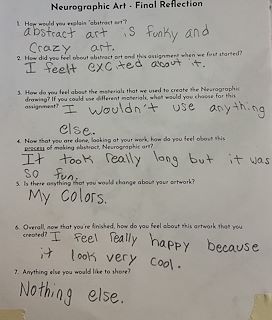 Neurographic Art - Final Reflection
1. How would you explain "abstract art"?
abstract art is funky and
Crazy art.
2. How did you feel about abstract art and this assignment when we first started?
I feelt excited about it.
3. How do you feel about the materials that we used to create the Neurographic
drawing? If you could use different materials, what would you choose for this
assignment? I wouldn't use anything
else.
4. Now that you are done, looking at your work, how do you feel about this
process of making abstract, Neurographic art?
It took really long but it was
so fun.
5. Is there anything that you would change about your artwork?
My colors.
6. Overall, now that you're finished, how do you feel about this artwork that you
created? I feel really happy because
it look very cool.
7. Anything else you would like to share?
Nothing else.